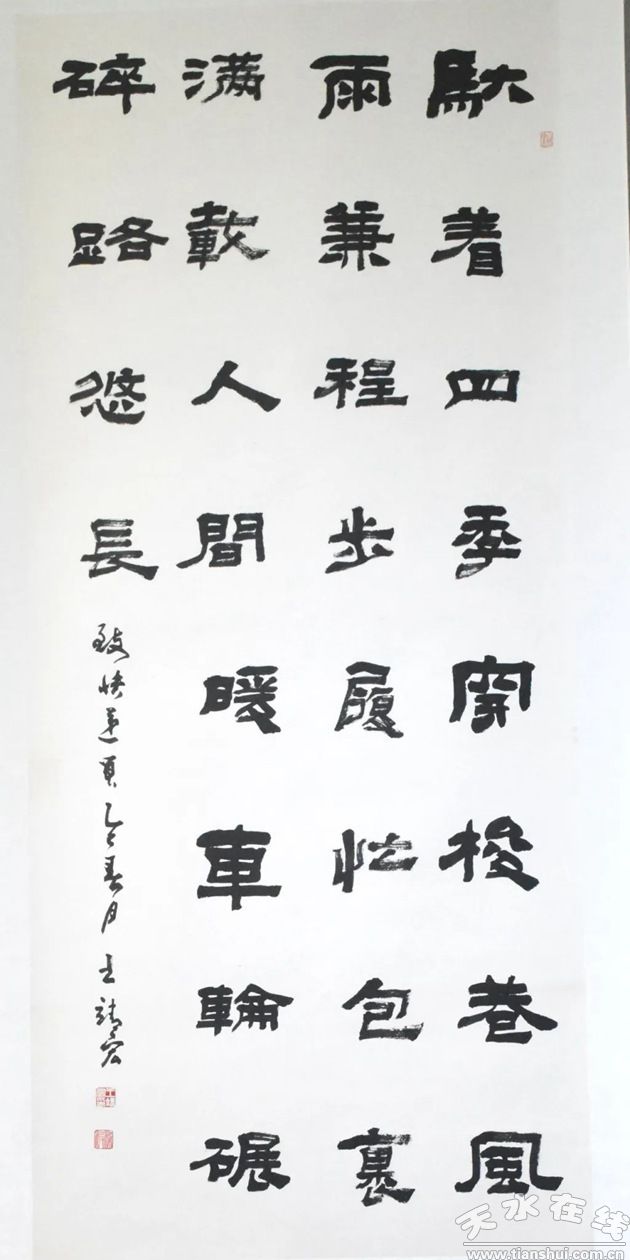 馱着四季穿梭巷風
雨兼程步履忙包裹
滿載人間暖車輪碾
碎路悠長
致快递員乙巳春月王
天水在线
www.tianshui.com.cn